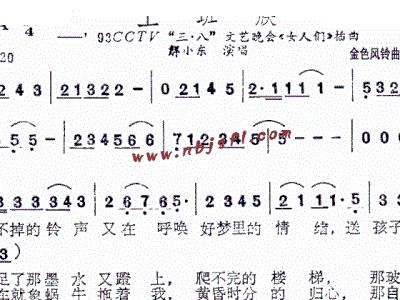 上 班 族
4 ——, 93CCTV “三·八”文艺晚会《女人们》插曲
20 解小东 演唱 金色风铃曲
2 4 3 | 2 1 3 2 2 - | 2 1 2 4 5 | 2·1 1 1 1 | - 5 3 2
5 5 - | 2 3 4 5 6 6 | 7 1 2 3 4 5 | 5 - - - | 0 0 0
www.nbjssl.com
3 3 3 3 4 3 | 2 6 7 6 5· | 1 2 3 2 3 | 2 2 1 1 1·5 | 3 3
不掉的 铃 声 又在 呼唤 好梦里的 情 绪，送 孩子
3)
足了那 墨 水 又蹬 上， 爬不完的 楼 梯， 那玻
车就象 蜗 牛 拖着 我， 黄昏时分 的 归心， 那自